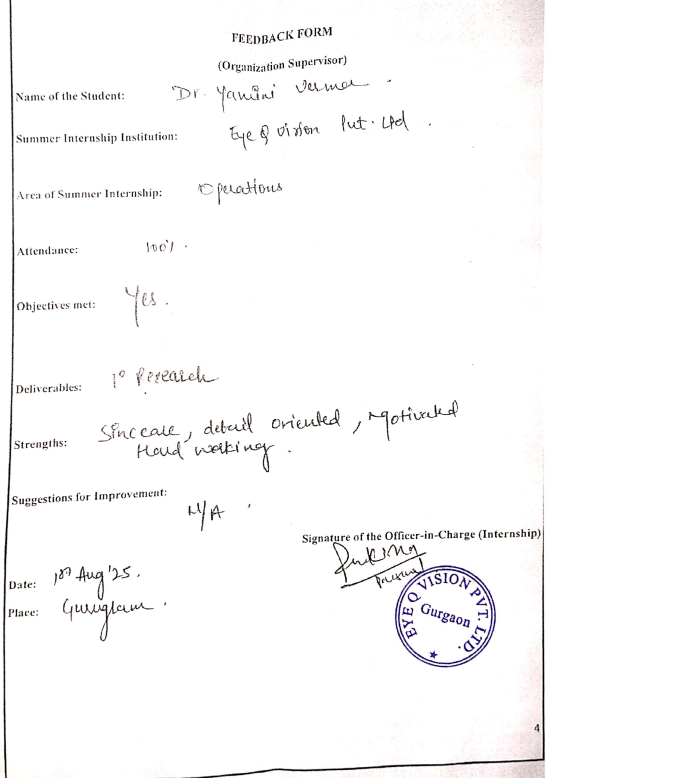 FEEDBACK FORM
(Organization Supervisor)
Name of the Student: Dr. Yamini Verma .
Summer Internship Institution: Eye Q Vision Pvt. Ltd .
Area of Summer Internship: Operations
Attendance: 100% .
Objectives met: Yes .
Deliverables: 1° Research
Strengths: Sinceare, detail oriented, Motivated
Hard working .
Suggestions for Improvement:
N/A
Signature of the Officer-in-Charge (Internship)
Date: Aug '25.
Place: Gurugram .
EYE Q VISION PVT. LTD.
Gurgaon
4